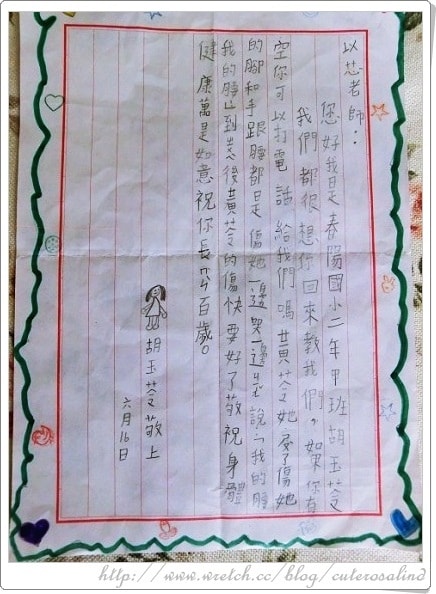 以芯老師：
您好我是春陽國小二年甲班胡玉苓
我們都很想你回來教我們，如果你有
空你可以打電話給我們嗎黄苓她受了傷她
的腳和手跟腰都是傷她一邊哭一邊說：「我的腰
我的腰」到之後黄苓的傷快要好了敬祝身體
健康萬是如意祝你長命百歲。
胡玉苓敬上
六月16日
http://www.wretch.cc/blog/cuterosalind